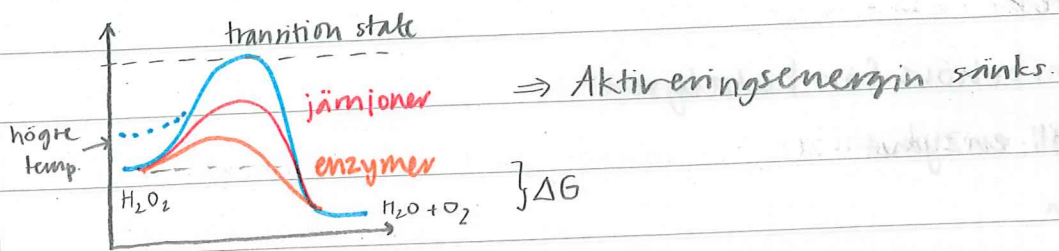 tranrition state
järnjoner
⇒ Aktiveringsenergin sänks.
högre
temp.
enzymer
}ΔG
H₂O₂
H₂O + O₂